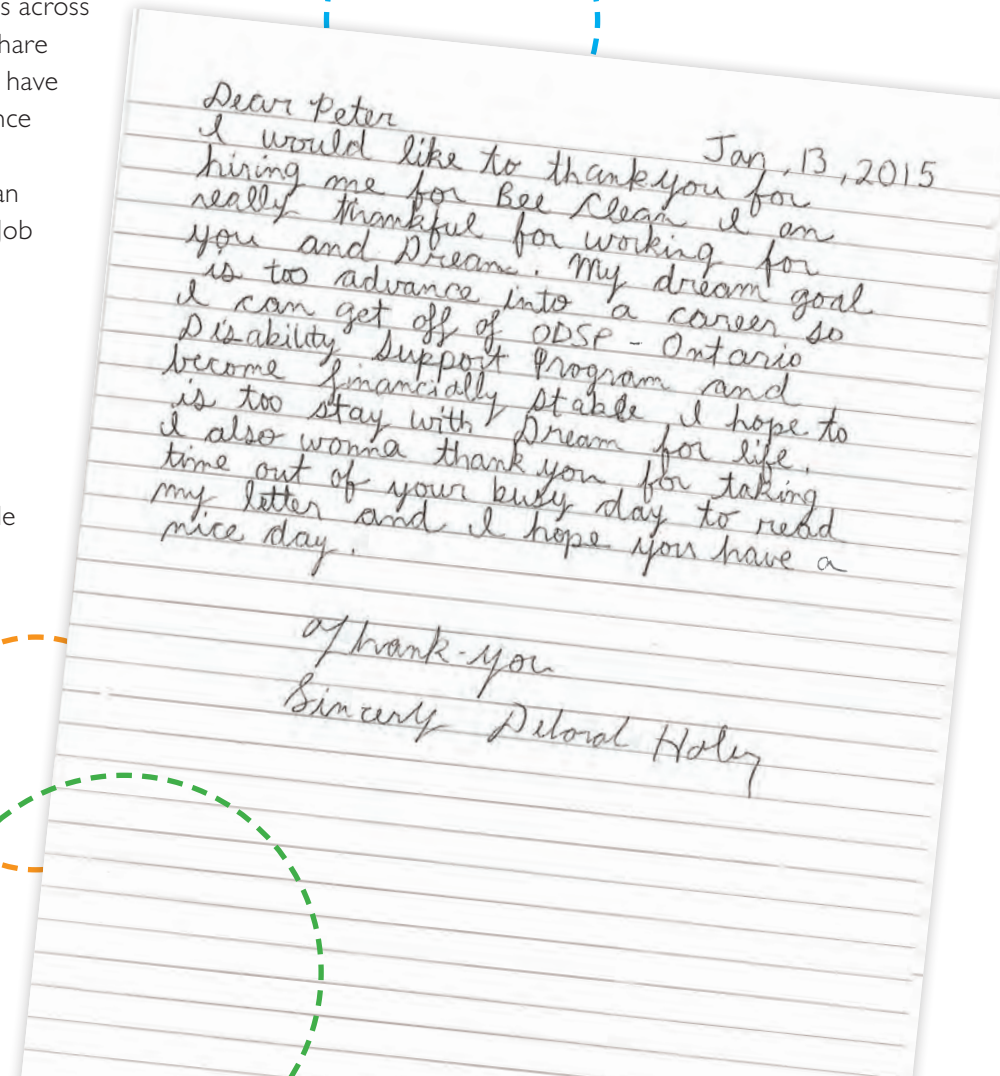 s across
hare
have
nce
an
Job
le
Jan, 13, 2015
Dear Peter
I would like to thankyou for
hiring me for Bee Clean I am
really thankful for working for
you and Dream. My dream goal
is too advance into a career so
I can get off of ODSP - Ontario
Disability Support Program and
become financially stable I hope to
is too stay with Dream for life.
I also wonna thank you for taking
time out of your busy day to read
my letter and I hope you have a
nice day.
Thank-you
Sincerly